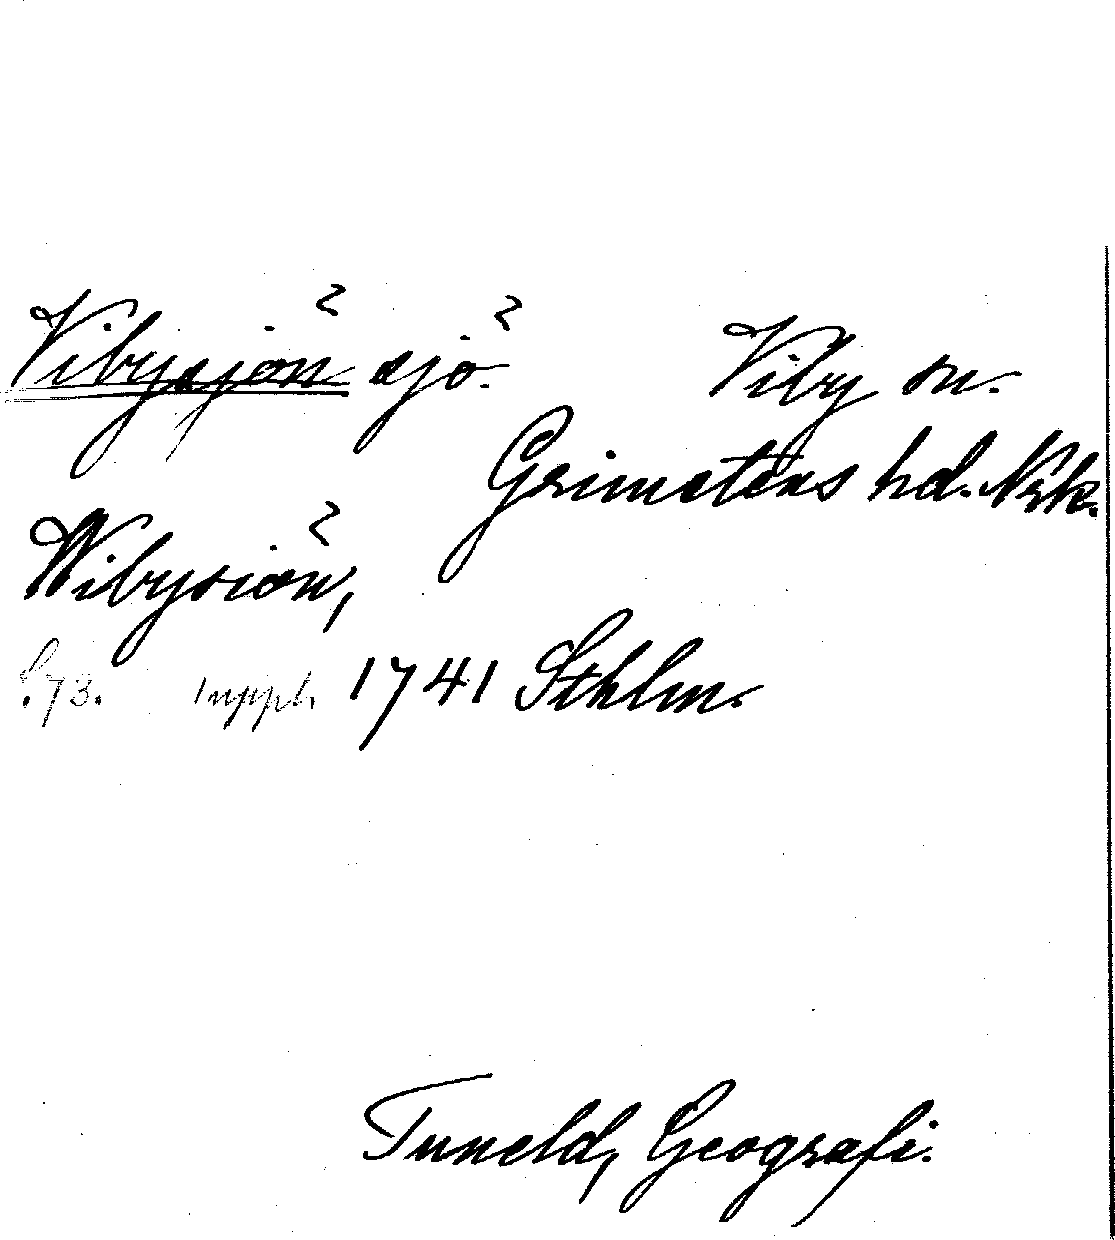 Vibysjön sjö.
Viby sn.
Grimstens hd. Nrk.
Wibysiön,
s. 73. 1 uppl. 1741 Sthlm.
Tuneld, Geografi.